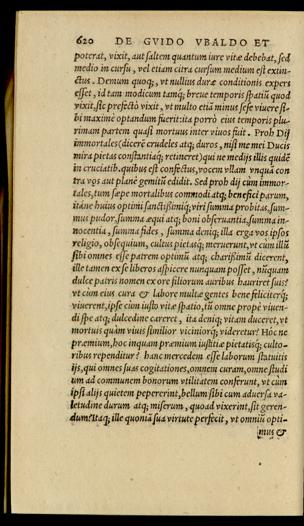 620 DE GVIDO VBALDO ET
poterat, vixit, aut saltem quantum iure vitæ debebat, sed
medio in cursu, vel etiam citra cursum medium est extin-
ctus. Demum quoq; vt nullius duræ conditionis expers
esset, id tam modicum tamq́; breue temporis spatiũ quod
vixit, sic profectò vixit, vt multo etiã minus sese viuere si-
bi maximè optandum fuerit: ita porrò eius temporis plu-
rimam partem quasi mortuus inter viuos fuit. Proh Dij
immortales (dicerẽ crudeles atq; duros, nisi me mei Ducis
mira pietas constantiaq́; retineret) qui ne medijs illis quidẽ
in cruciatib. quibus est confectus, vocem vllam vnquã con
tra vos aut planè gemitũ edidit. Sed proh dij cùm immor-
tales, tum sæpe mortalibus commodi atq; benefici parum,
itáne huius optimi sanctissimiq́; viri summa probitas, sum-
mus pudor, summa æqui atq; boni obseruantia, summa in-
nocentia, summa fides, summa deniq; illa erga vos ipsos
religio, obsequium, cultus pietasq́; meruerunt, vt cùm illũ
sibi omnes esse patrem optimũ atq; charissimũ dicerent,
ille tamen ex se liberos aspicere nunquam posset, nũquam
dulce patris nomen ex ore filiorum auribus hauriret suis?
vt cùm eius cura & labore multæ gentes bene feliciterq́;
viuerent, ipse cùm iusto vitæ spatio, tũ omne propè viuen-
di spe atq; dulcedine careret, ita deniq; vitam duceret, vt
mortuis quàm viuis similior viciniorq́; videretur? Hoc ne
præmium, hoc inquam præmium iustitiæ pietatisq́; culto-
ribus rependitur? hanc mercedem esse laborum statuitis
ijs, qui omnes suas cogitationes, omnem curam, omne studi
um ad communem bonorum vtilitatem conferunt, vt cùm
ipsi alijs quietem pepererint, bellum sibi cum aduersa va-
letudine durum atq; miserum, quoad vixerint, sit geren-
dum? Itaq; ille quoniã sua virtute perfecit, vt omniũ opti-
mus &